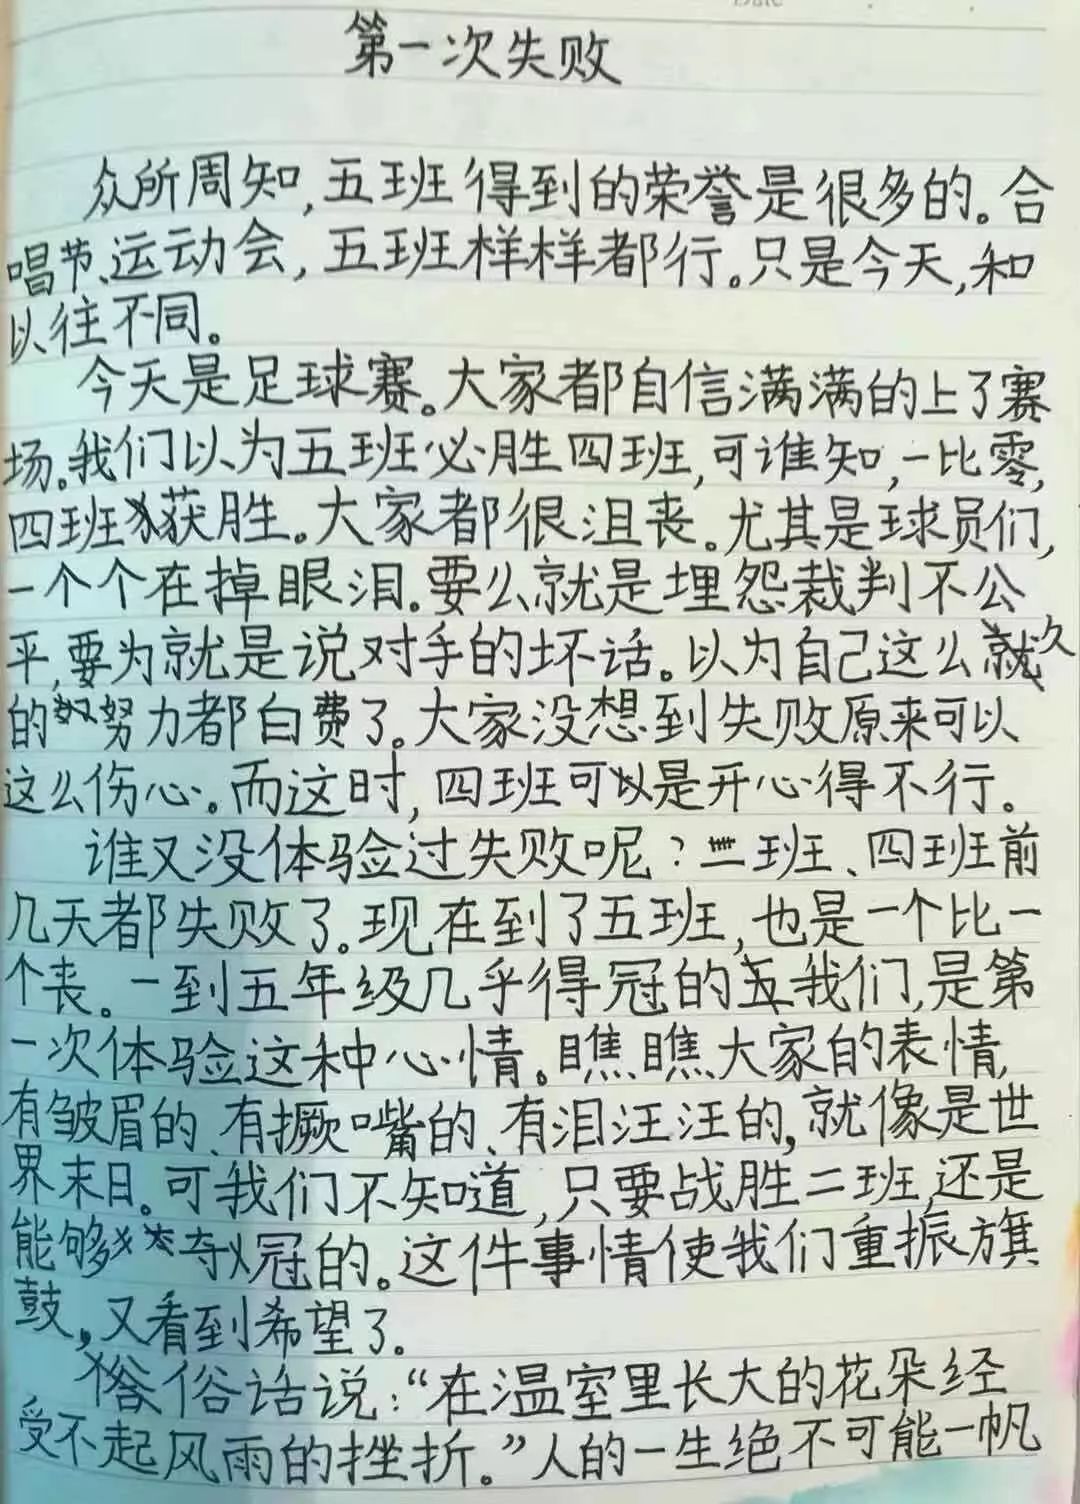 Date
第一次失败
众所周知,五班得到的荣誉是很多的。合
唱节、运动会,五班样样都行。只是今天,和
以往不同。
今天是足球赛。大家都自信满满的上了赛
场。我们以为五班必胜四班,可谁知,一比零,
四班获胜。大家都很沮丧。尤其是球员们,
一个个在掉眼泪。要么就是埋怨裁判不公
平,要为就是说对手的坏话。以为自己这么久
的努力都白费了。大家没想到失败原来可以
这么伤心。而这时,四班可是开心得不行。
谁又没体验过失败呢?二班、四班前
几天都失败了。现在到了五班,也是一个比一
个丧。一到五年级几乎得冠的我们,是第
一次体验这种心情。瞧瞧大家的表情,
有皱眉的、有撅嘴的、有泪汪汪的,就像是世
界末日。可我们不知道,只要战胜二班,还是
能够夺冠的。这件事情使我们重振旗
鼓,又看到希望了。
俗话说:“在温室里长大的花朵经
受不起风雨的挫折。”人的一生绝不可能一帆